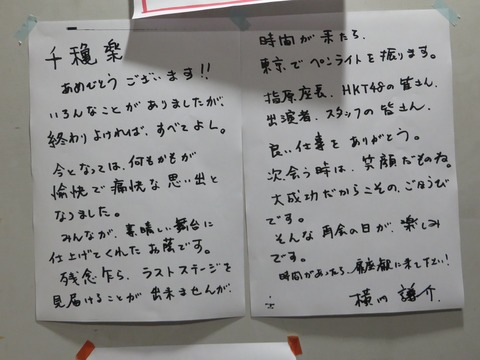 千穐楽
おめでとうございます!!
いろんなことがありましたが、
終わりよければ、すべてよし。
今となっては、何もかもが
愉快で痛快な思い出と
なりました。
みんなが、素晴しい舞台に
仕上げてくれたお蔭です。
残念乍ら、ラストステージを
見届けることが出来ませんが、
時間が来たら、
東京でペンライトを振ります。
指原座長、HKT48の皆さん、
出演者、スタッフの皆さん、
良い仕事をありがとう。
次会う時は、笑顔だものね。
大成功だからこその、ごほうび
です。
そんな再会の日が、楽しみ
です。
時間があったら、扉座観に来て下さい!
横内謙介